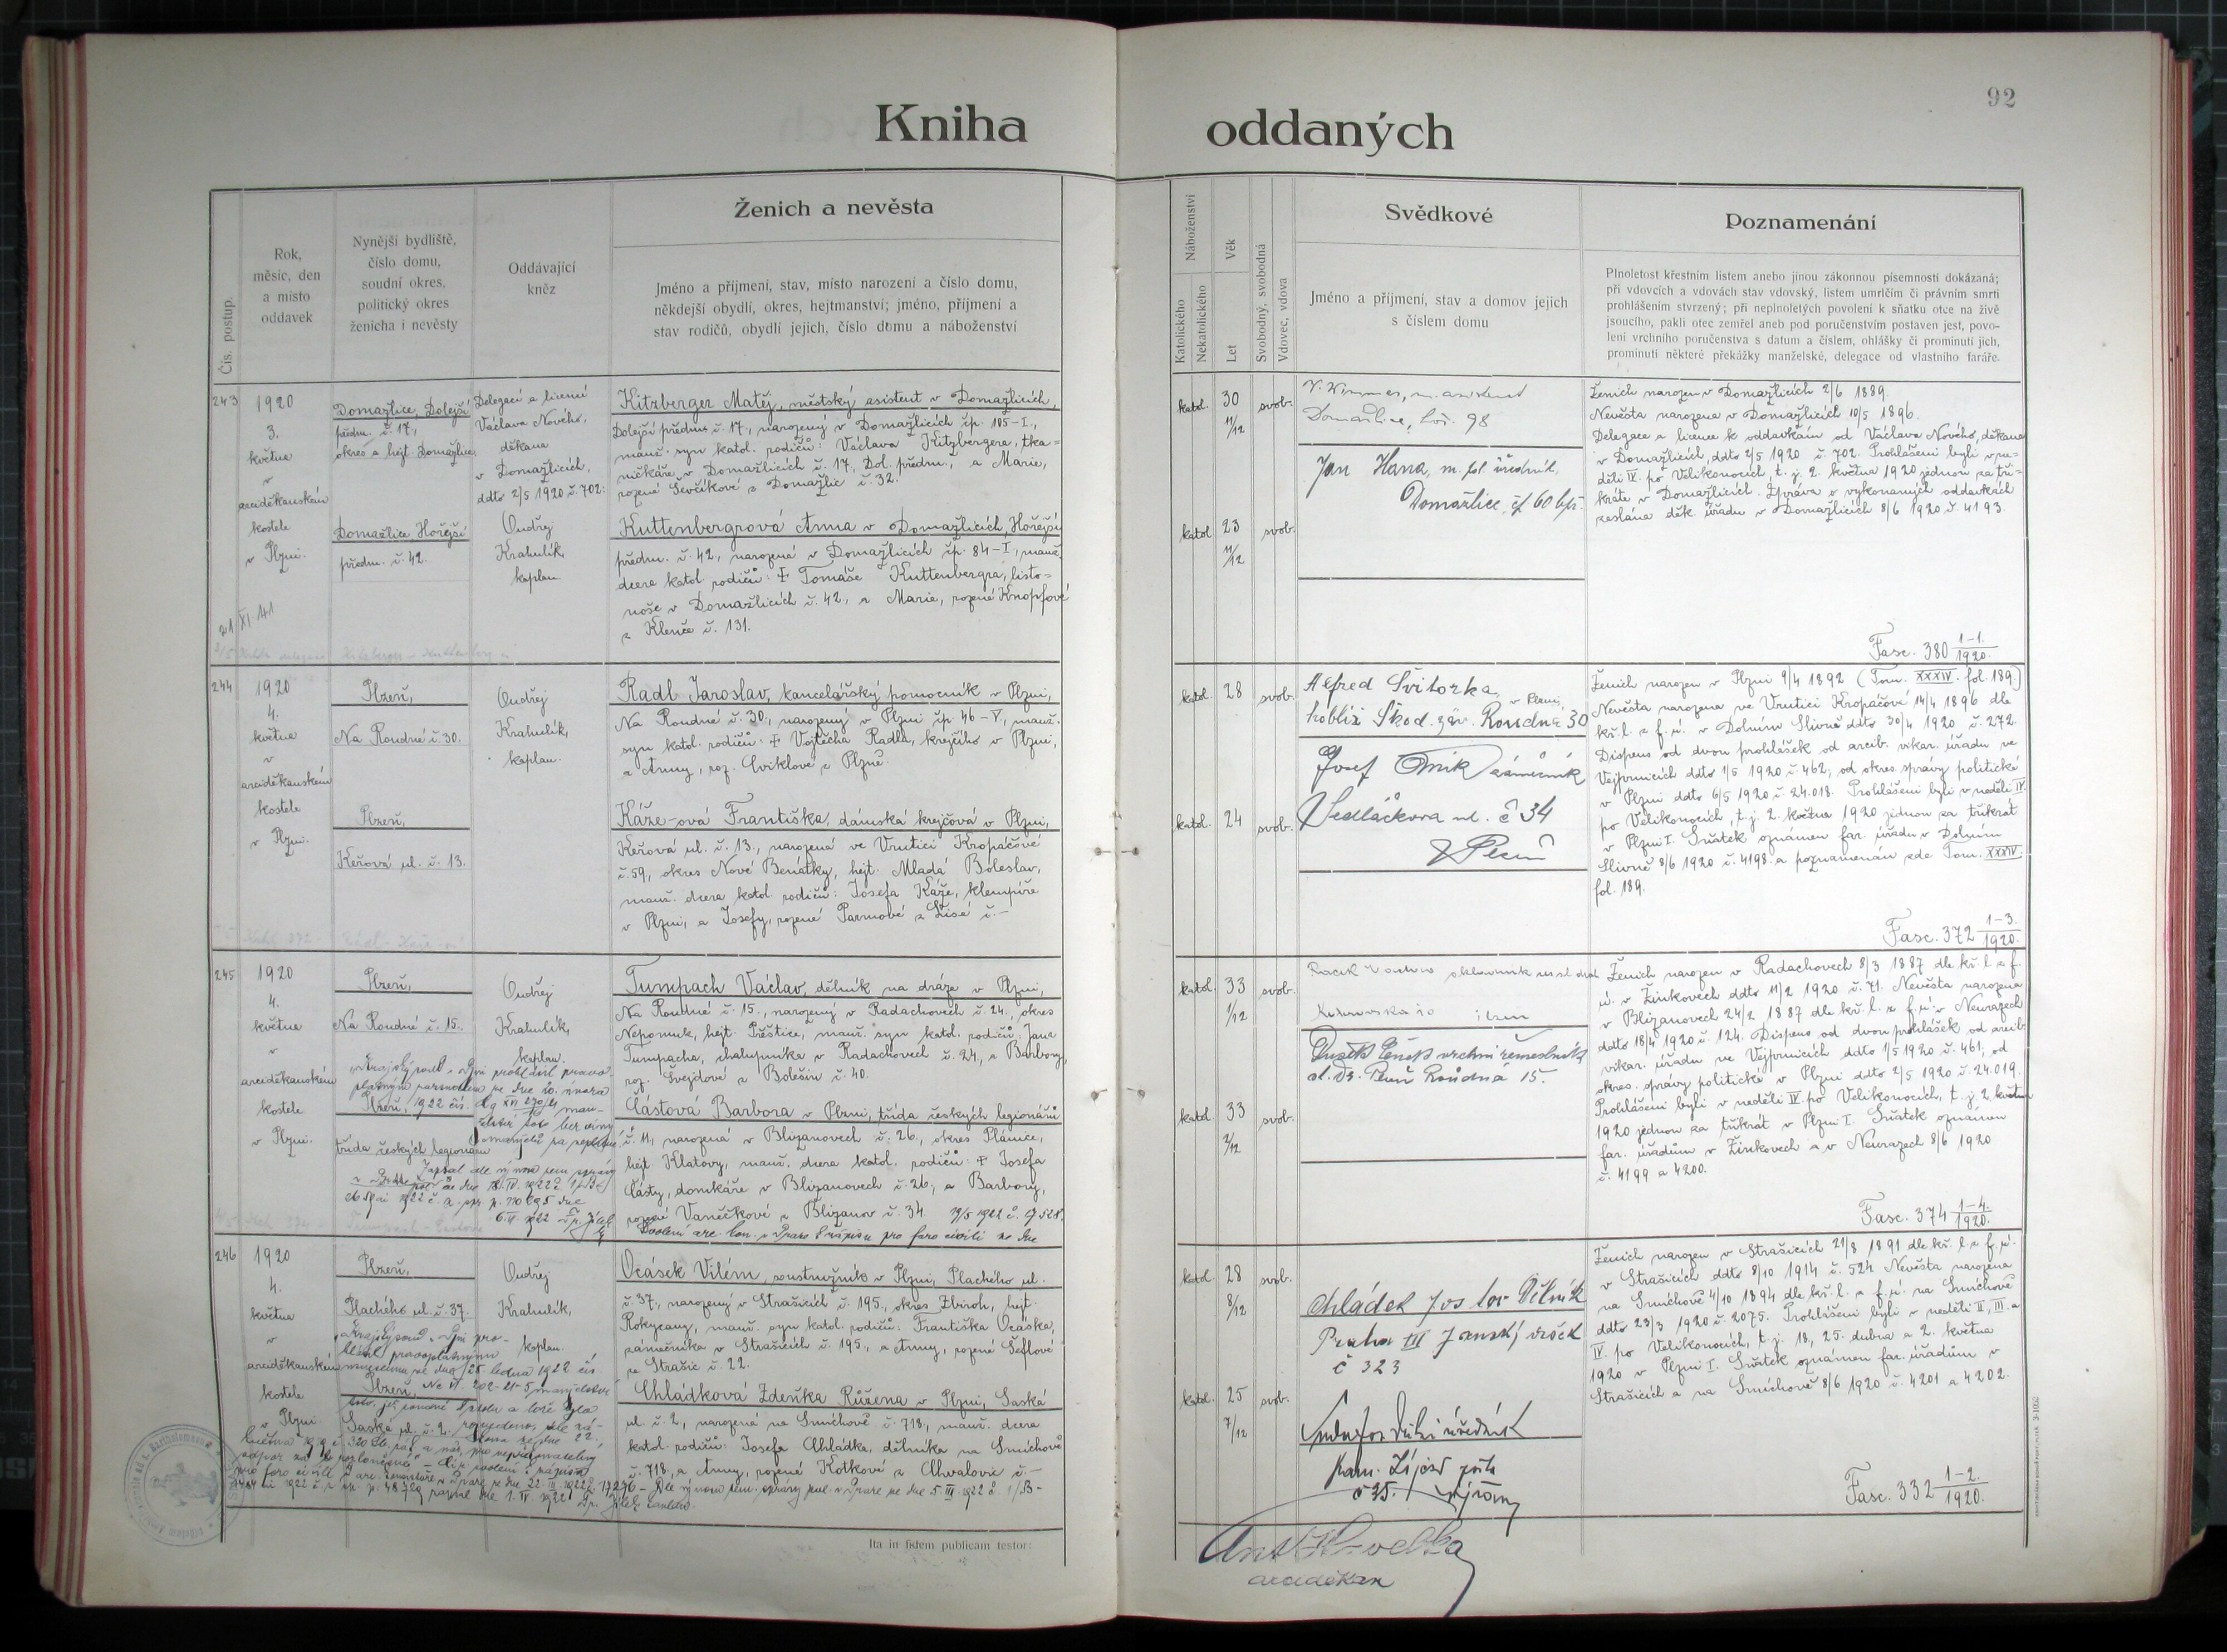 92
Kniha oddaných
Čís. postup.
Rok,
měsíc, den
a místo
oddavek
Nynější bydliště,
číslo domu,
soudní okres,
politický okres
ženicha i nevěsty
Oddávající
kněz
Ženich a nevěsta
Jméno a příjmení, stav, místo narození a číslo domu,
někdejší obydlí, okres, hejtmanství; jméno, příjmení a
stav rodičů, obydlí jejich, číslo domu a náboženství
Náboženství
Katolického
Nekatolického
Věk
Let
Svobodný, svobodná
Vdovec, vdova
Svědkové
Jméno a příjmení, stav a domov jejich
s číslem domu
Poznamenání
Plnoletost křestním listem anebo jinou zákonnou písemností dokázaná;
při vdovcích a vdovách stav vdovský, listem umrlčím či právním smrti
prohlášením stvrzený; při neplnoletých povolení k sňatku otce na živě
jsoucího, pakli otec zemřel aneb pod poručenstvím postaven jest, povo-
lení vrchního poručenstva s datum a číslem, ohlášky či prominutí jich,
prominutí některé překážky manželské, delegace od vlastního faráře.
243
1920
3.
května
v
arciděkanském
kostele
v Plzni.
21 XI 41
Domažlice, Dolejší
předm. č. 17,
okres a hejt. Domažlice
Domažlice, Hořejší
předm. č. 42.
Delegací a licencí
Václava Nového,
děkana
v Domažlicích,
ddto 2/5 1920 č. 702:
Ondřej
Krahulík,
kaplan.
Kitzberger Matěj, městský asistent v Domažlicích,
Dolejší předm. č. 17., narozený v Domažlicích čp. 105-I.,
manž. syn katol. rodičů: Václava Kitzbergera, tka=
ničkáře v Domažlicích č. 17, Dol. předm., a Marie,
rozené Ševčíkové z Domažlic č. 32.
Kuttenbergrová Anna v Domažlicích, Hořejší
předm. č. 42, narozená v Domažlicích čp. 84-I, manž.
dcera katol. rodičů: † Tomáše Kuttenbergra, listo=
noše v Domažlicích č. 42., a Marie, rozené Knopfové
z Klenče č. 131.
katol. 30 11/12 svob.
katol. 23 11/12 svob.
Domažlice, 98
Jan Hana, úředník,
Domažlice, čp. 60
Ženich narozen v Domažlicích 2/6 1889.
Nevěsta narozena v Domažlicích 10/5 1896.
Delegace a licence k oddavkám od Václava Nového, děkana
v Domažlicích, ddto 2/5 1920 č. 702. Prohlášeni byli v ne=
děli IV. po Velikonocích, t. j. 2. května 1920 jednou za tři=
kráte v Domažlicích. Zpráva o vykonaných oddavkách
zaslána děk. úřadu v Domažlicích 8/6 1920 č. 4193.
Fasc. 380 1-1./1920.
244
1920
4.
května
v
arciděkanském
kostele
v Plzni.
Plzeň,
Na Roudné č. 30.
Plzeň,
Keřová ul. č. 13.
Ondřej
Krahulík,
kaplan.
Radl Jaroslav, kancelářský pomocník v Plzni,
Na Roudné č. 30., narozený v Plzni čp. 46-V, manž.
syn katol. rodičů: † Vojtěcha Radla, krejčího v Plzni,
a Anny, roz. Cviklové z Plzně.
Káže-ová Františka, dámská krejčová v Plzni,
Keřová ul. č. 13., narozená ve Vrutici Kropáčově
č. 59, okres Nové Benátky, hejt. Mladá Boleslav,
manž. dcera katol. rodičů: Josefa Káže, klempíře
v Plzni, a Josefy, rozené Parmové z Lisé č. -
katol. 28 svob.
katol. 24 svob.
Alfred Svitorka, v Plzni,
Škod. záv. Roudná 30
Josef zámečník
Sedláčkova ul. č 34
v Plzni
Ženich narozen v Plzni 9/4 1892 (Tom. XXXIV. fol. 189.)
Nevěsta narozena ve Vrutici Kropáčově 14/4 1896 dle
kř. l. z f. ú. v Dolním Slivně ddto 30/4 1920 č. 272.
Dispens od dvou prohlášek od arcib. vikar. úřadu ve
Vejprnicích ddto 1/5 1920 č. 462, od okres. správy politické
v Plzni ddto 6/5 1920 č. 24.018. Prohlášeni byli v neděli IV.
po Velikonocích, t. j. 2. května 1920 jednou za třikrát
v Plzni I. Sňatek oznámen far. úřadu v Dolním
Slivně 8/6 1920 č. 4198. a poznamenán zde Tom. XXXIV.
fol. 189.
Fasc. 372 1-3./1920.
245
1920
4.
května
v
arciděkanském
kostele
v Plzni.
Plzeň,
Na Roudné č. 15.
Plzeň,
třída českých legionářů
Ondřej
Krahulík,
kaplan.
Tumpach Václav, dělník na dráze v Plzni,
Na Roudné č. 15., narozený v Radachovech č. 24., okres
Nepomuk, hejt. Přeštice, manž. syn katol. rodičů: Jana
Tumpacha, chalupníka v Radachovech č. 24, a Barbory,
roz. Švejdové z Bolešin č. 40.
Částová Barbora v Plzni, třída českých legionářů
č. 11, narozená v Blizanovech č. 26., okres Plánice,
hejt. Klatovy, manž. dcera katol. rodičů: † Josefa
Částy, domkáře v Blizanovech č. 26., a Barbory,
rozené Vaněčkové z Blizanov č. 34.
katol. 33 1/12 svob.
katol. 33 2/12 svob.
vrchní řemeslník
st. dr. Plzeň Roudná 15.
Ženich narozen v Radachovech 8/3 1887 dle kř. l. z f.
ú. v Žinkovech ddto 11/2 1920 č. 71. Nevěsta narozena
v Blizanovech 24/2 1887 dle kř. l. z f. ú. v Neurazech
ddto 18/4 1920 č. 124. Dispens od dvou prohlášek od arcib.
vikar. úřadu ve Vejprnicích ddto 1/5 1920 č. 461, od
okres. správy politické v Plzni ddto 2/5 1920 č. 24.019.
Prohlášeni byli v neděli IV. po Velikonocích, t. j. 2. května
1920 jednou za třikrát v Plzni I. Sňatek oznámen
far. úřadům v Žinkovech a v Neurazech 8/6 1920
č. 4199 a 4200.
Fasc. 374 1-4./1920.
246
1920
4.
května
v
arciděkanském
kostele
v Plzni.
Plzeň,
Plachého ul. č. 37.
Plzeň,
Saská ul. č. 2.
Ondřej
Krahulík,
kaplan.
Ocásek Vilém, soustružník v Plzni, Plachého ul.
č. 37., narozený v Strašicích č. 195., okres Zbiroh, hejt.
Rokycany, manž. syn katol. rodičů: Františka Ocáska,
zámečníka v Strašicích č. 195., a Anny, rozené Šeflové
ze Strašic č. 22.
Chládková Zdeňka Růžena v Plzni, Saská
ul. č. 2., narozená na Smíchově č. 718., manž. dcera
katol. rodičů: Josefa Chládka, dělníka na Smíchově
č. 718., a Anny, rozené Kotkové z Chvalovic č. -
katol. 28 8/12 svob.
katol. 25 7/12 svob.
Chládek Dělník
Praha III Janský vršek
č 323
Ženich narozen v Strašicích 21/8 1891 dle kř. l. z f. ú.
v Strašicích ddto 8/10 1914 č. 524. Nevěsta narozena
na Smíchově 4/10 1894 dle kř. l. z f. ú. na Smíchově
ddto 23/3 1920 č. 2075. Prohlášeni byli v neděli II., III. a
IV. po Velikonocích, t. j. 18., 25. dubna a 2. května
1920 v Plzni I. Sňatek oznámen far. úřadům v
Strašicích a na Smíchově 8/6 1920 č. 4201 a 4202.
Fasc. 332 1-2./1920.
Ita in fidem publicam testor:
arciděkan